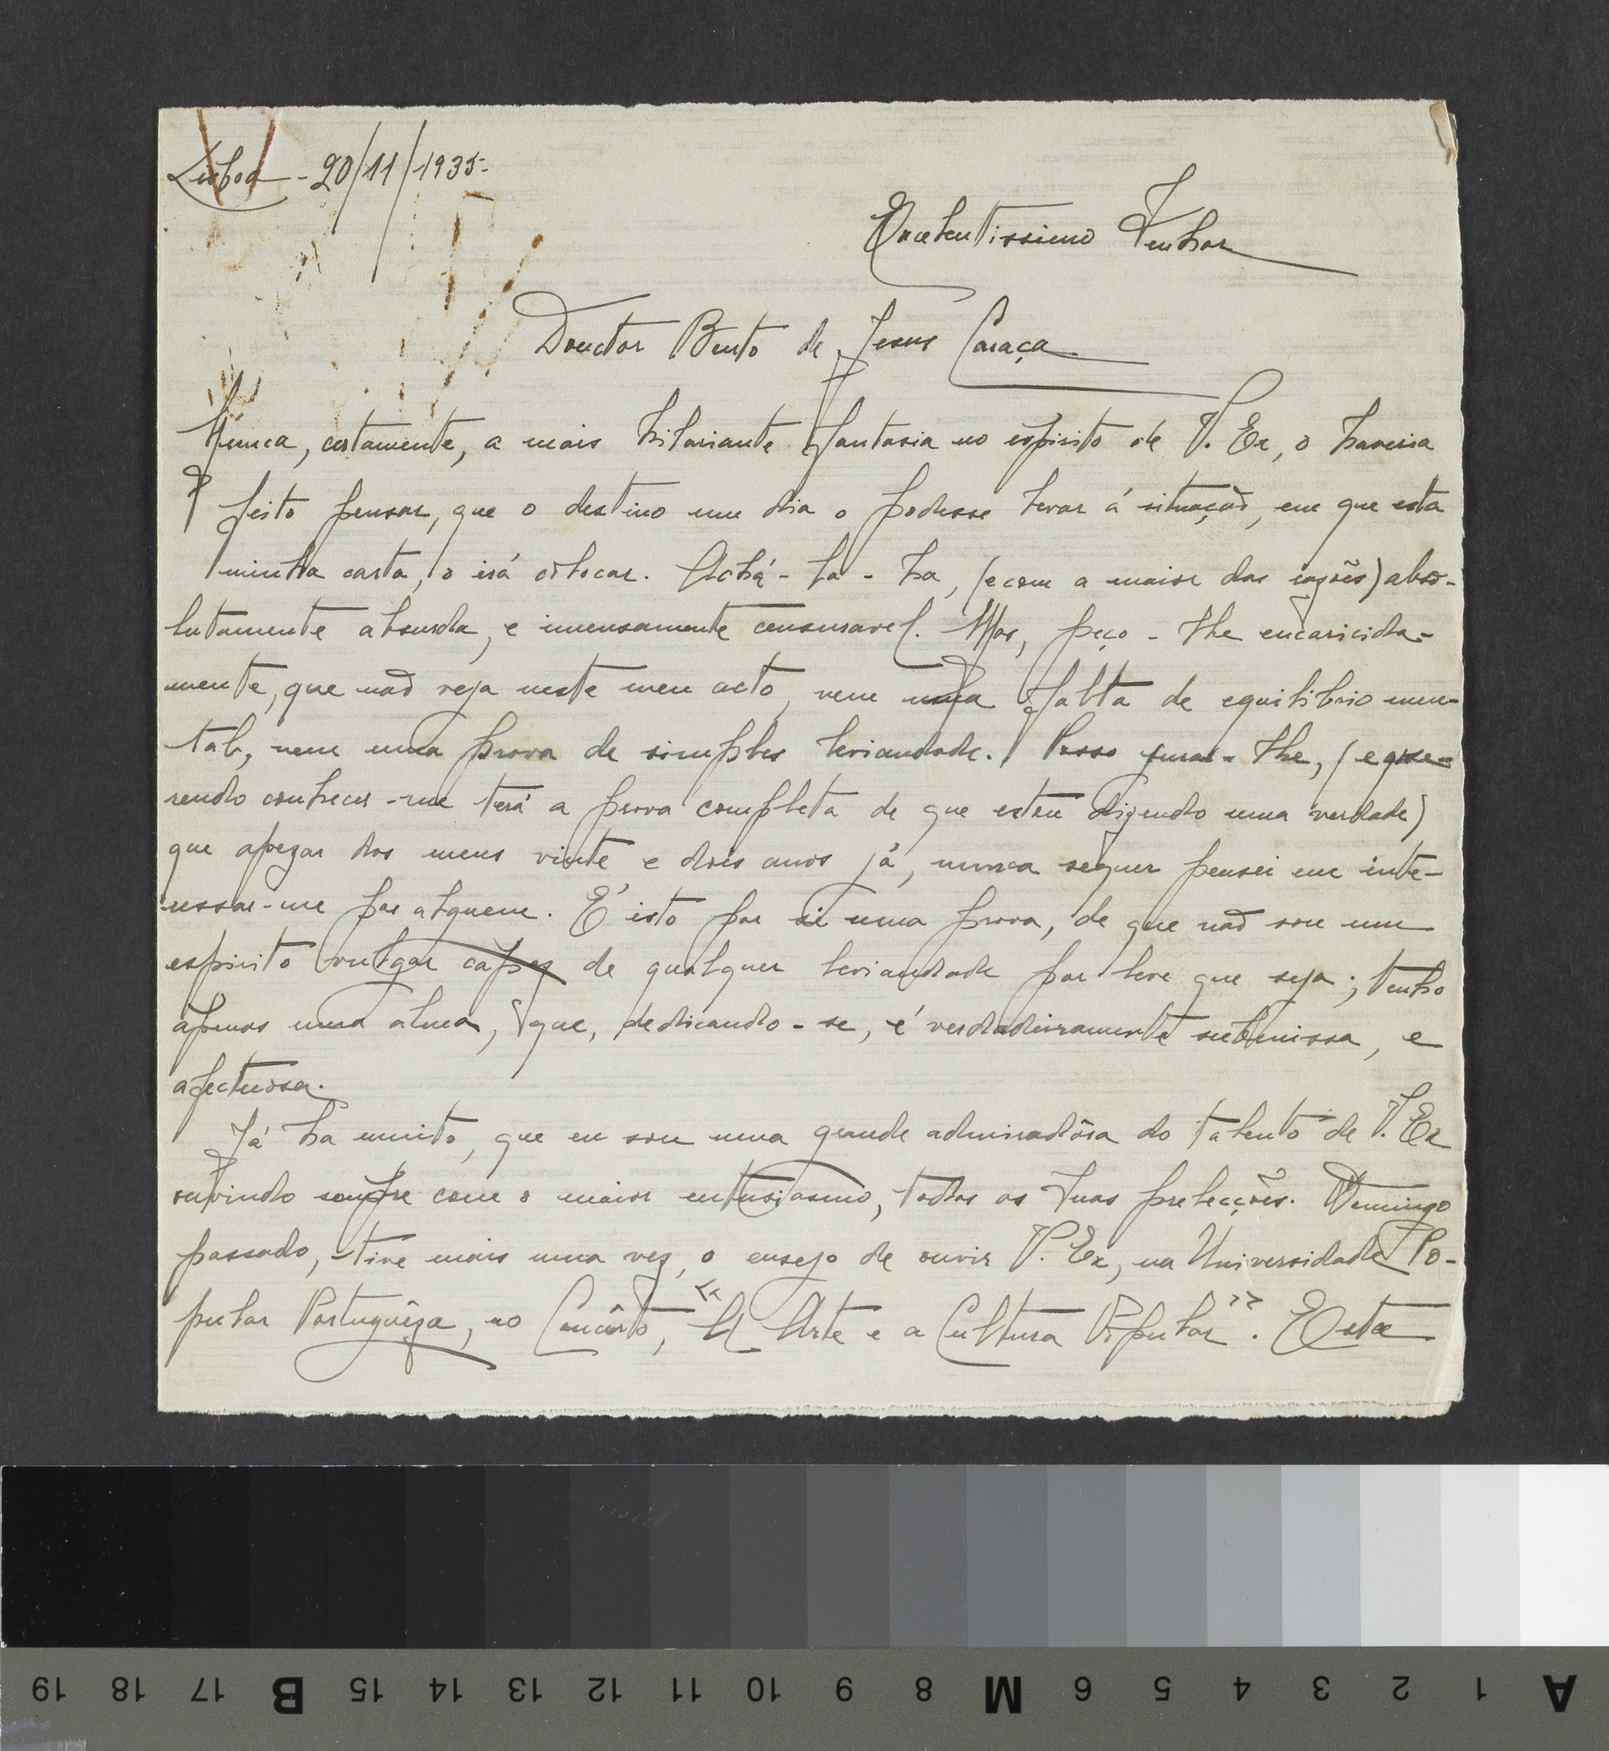 Lisboa - 20/11/1935-
Excelentissimo Senhor
Douctor Bento de Jesus Caraça
Nunca, certamente, a mais hilariante fantasia no espirito de V. Ex, o haveria
feito pensar, que o destino um dia o podesse levar á situação, em que esta
minha carta, o irá colocar. Achá-la-ha, (e com a maior das rasões) abso-
lutamente absurda, e imensamente censuravel. Mas, peço-lhe encaricida-
mente, que não veja neste meu acto, nem uma falta de equilibrio men-
tal, nem uma prova de simples leviandade. Posso jurar-lhe, (e que-
rendo conhecer-me terá a prova completa de que estou dizendo uma verdade)
que apezar dos meus vinte e dois anos já, nunca sequer pensei em inte-
ressar-me por alguem. E' isto por si uma prova, de que não sou um
espirito vulgar capaz de qualquer leviandade por leve que seja; tenho
apenas uma alma, que, dedicando-se, é verdadeiramente submissa, e
afectuosa.
Já ha muito, que eu sou uma grande admiradôra do talento de V. Ex
ouvindo sempre com o maior entusiasmo, todas as suas prelecções. Domingo
passado, tive mais uma vez, o ensejo de ouvir V. Ex, na Universidade Po-
pular Portuguêza, no Concêrto, «A Arte e a Cultura Popular». Esta
19 18 17 B 15 14 13 12 11 10 9 8 M 6 5 4 3 2 1 A